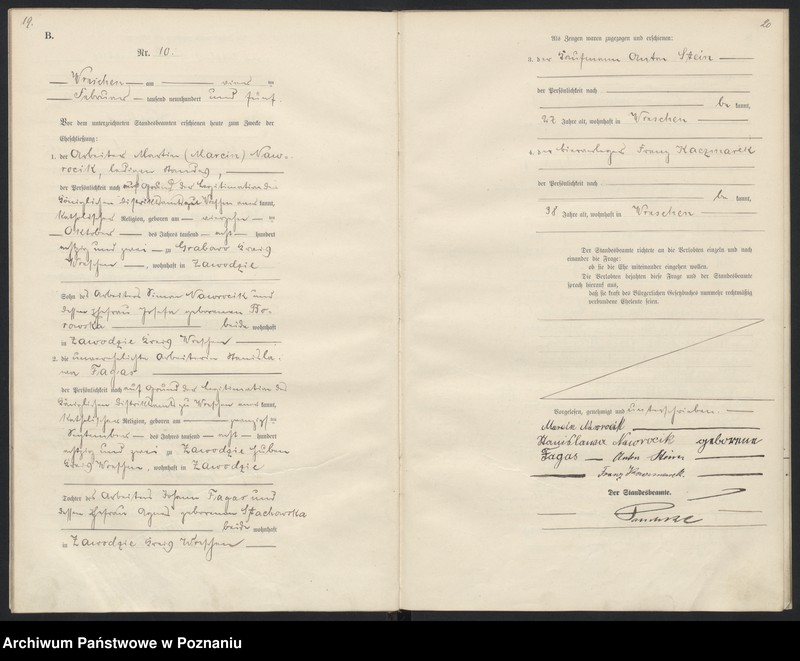 19.
B.
Nr. 10.
Wreschen am vier ten
Februar tausend neunhundert und fünf.
Vor dem unterzeichneten Standesbeamten erschienen heute zum Zwecke der
Eheschließung:
1. der Arbeiter Martin (Marcin) Naw-
rocik, ledigen Standes,
der Persönlichkeit nach auf Grund der Legitimation des
Königlichen Distriktsamts zu Wreschen aner kannt,
katholischer Religion, geboren am
Oktober des Jahres tausend acht hundert
achtzig und zwei zu Grabowo Kreis
Wreschen, wohnhaft in Zawodzie
Sohn des Arbeiters Simon Nawrocik und
dessen Ehefrau Josefa geborenen Bo-
rowska beide wohnhaft
in Zawodzie Kreis Wreschen
2. die unverehelichte Arbeiterin Stanisla-
wa Fagas
der Persönlichkeit nach auf Grund der Legitimation des
Königlichen Distriktsamts zu Wreschen aner kannt,
katholischer Religion, geboren am
September des Jahres tausend acht hundert
achtzig und zwei zu Zawodzie Huben
Kreis Wreschen, wohnhaft in Zawodzie
Tochter des Arbeiters Johann Fagas und
dessen Ehefrau Agnes geborenen Stachowska
beide wohnhaft
in Zawodzie Kreis Wreschen
20
Als Zeugen waren zugezogen und erschienen:
3. der Kaufmann Anton Stein
der Persönlichkeit nach
be kannt,
27 Jahre alt, wohnhaft in Wreschen
4. der Bierverleger Franz Kaczmarek
der Persönlichkeit nach
be kannt,
38 Jahre alt, wohnhaft in Wreschen
Der Standesbeamte richtete an die Verlobten einzeln und nach
einander die Frage:
ob sie die Ehe miteinander eingehen wollen.
Die Verlobten bejahten diese Frage und der Standesbeamte
sprach hierauf aus,
daß sie kraft des Bürgerlichen Gesetzbuchs nunmehr rechtmäßig
verbundene Eheleute seien.
Vorgelesen, genehmigt und unterschrieben.
Marcin Nawrocik
Stanisława Nawrocik geborene
Fagas Anton Stein
Franz Kaczmarek.
Der Standesbeamte.
Archiwum Państwowe w Poznaniu